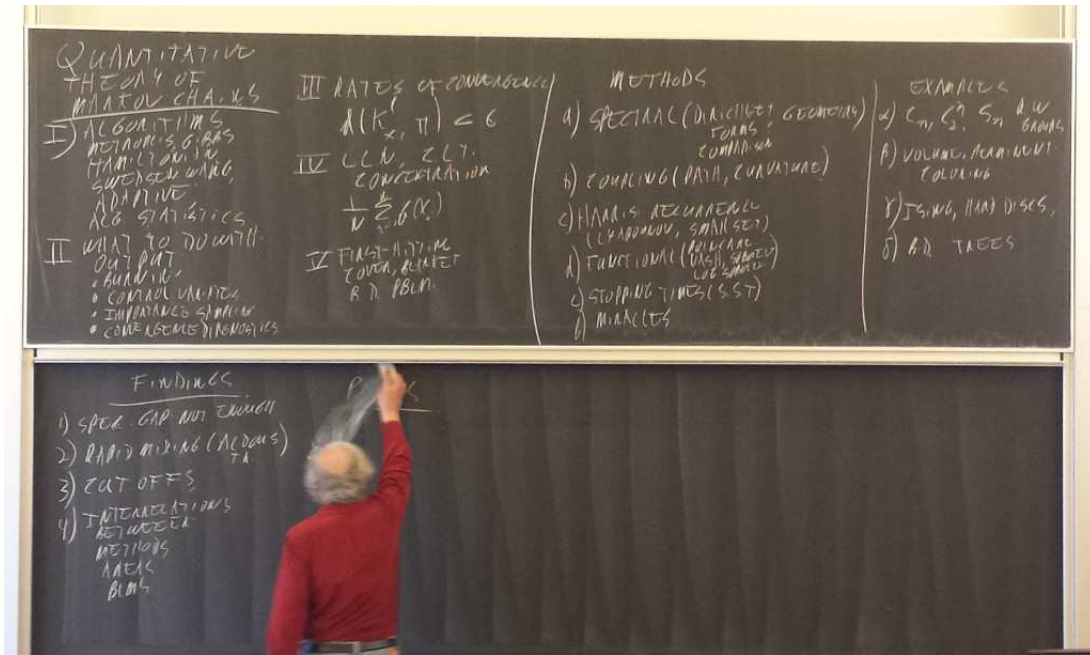 QUANTITATIVE
THEORY OF
MARKOV CHAINS
I) ALGORITHMS
METROPOLIS, GIBBS
HAMILTONIAN
SWENDSEN WANG,
ADAPTIVE
ALG STATISTICS
II WHAT TO DO WITH
OUTPUT
• BURN IN
• CONTROL VARIATES
• IMPORTANCE SAMPLING
• CONVERGENCE DIAGNOSTICS
III RATES OF CONVERGENCE
IV LLN, CLT.
CONCENTRATION
V FIRST HITTING
COVER, BLANKET
B.D. PBLM.
METHODS
a) SPECTRAL (DIRICHLET GEOMETRY)
FORMS,
COMPARISON
b) COUPLING (PATH, CURVATURE)
c) HARRIS RECURRENCE
(LYAPUNOV, SMALL SET)
d) FUNCTIONAL (POINCARE
NASH, SOBOLEV
LOG SOBOLEV)
e) STOPPING TIMES (S.S.T)
f) MIRACLES
EXAMPLES
α) Cₙ, C₂ⁿ, Sₙ RW
GROUPS
β) VOLUME, PERMANENT
COLORING
γ) ISING, HARD DISCS,
δ) B.D. TREES
FINDINGS
1) SPEC. GAP NOT ENOUGH
2) RAPID MIXING (ALDOUS)
3) CUT OFFS
4) INTERRELATIONS
BETWEEN
METHODS
AREAS
PBLMS